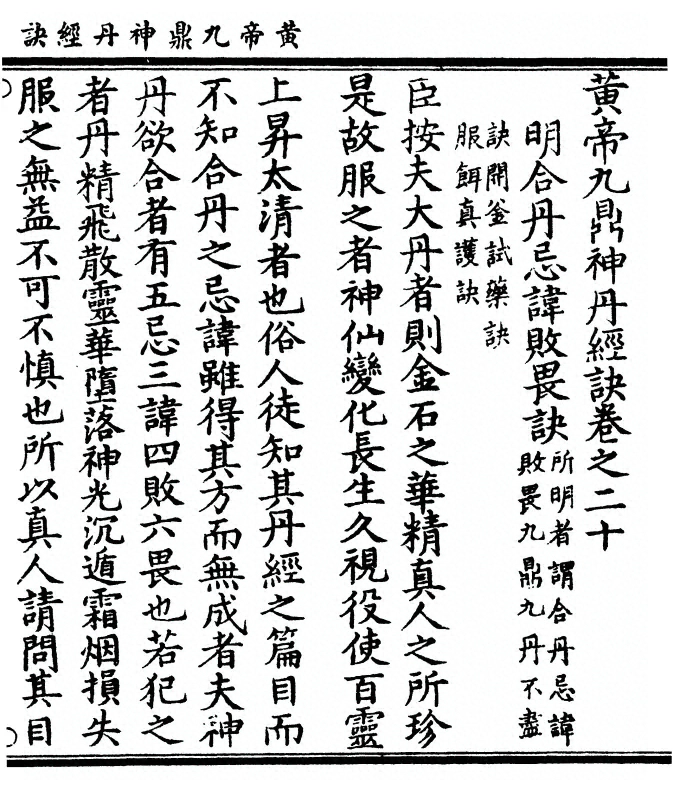 黃帝九鼎神丹經訣
黃帝九鼎神丹經訣卷之二十
明合丹忌諱敗畏訣
所明者謂合丹忌諱
敗畏九鼎九丹不盡
訣開釜試藥訣
服餌真護訣
臣按夫大丹者則金石之華精真人之所珍
是故服之者神仙變化長生久視役使百靈
上昇太清者也俗人徒知其丹經之篇目而
不知合丹之忌諱雖得其方而無成者夫神
丹欲合者有五忌三諱四敗六畏也若犯之
者丹精飛散靈華墮落神光沉遁霜烟損失
服之無益不可不慎也所以真人請問其目